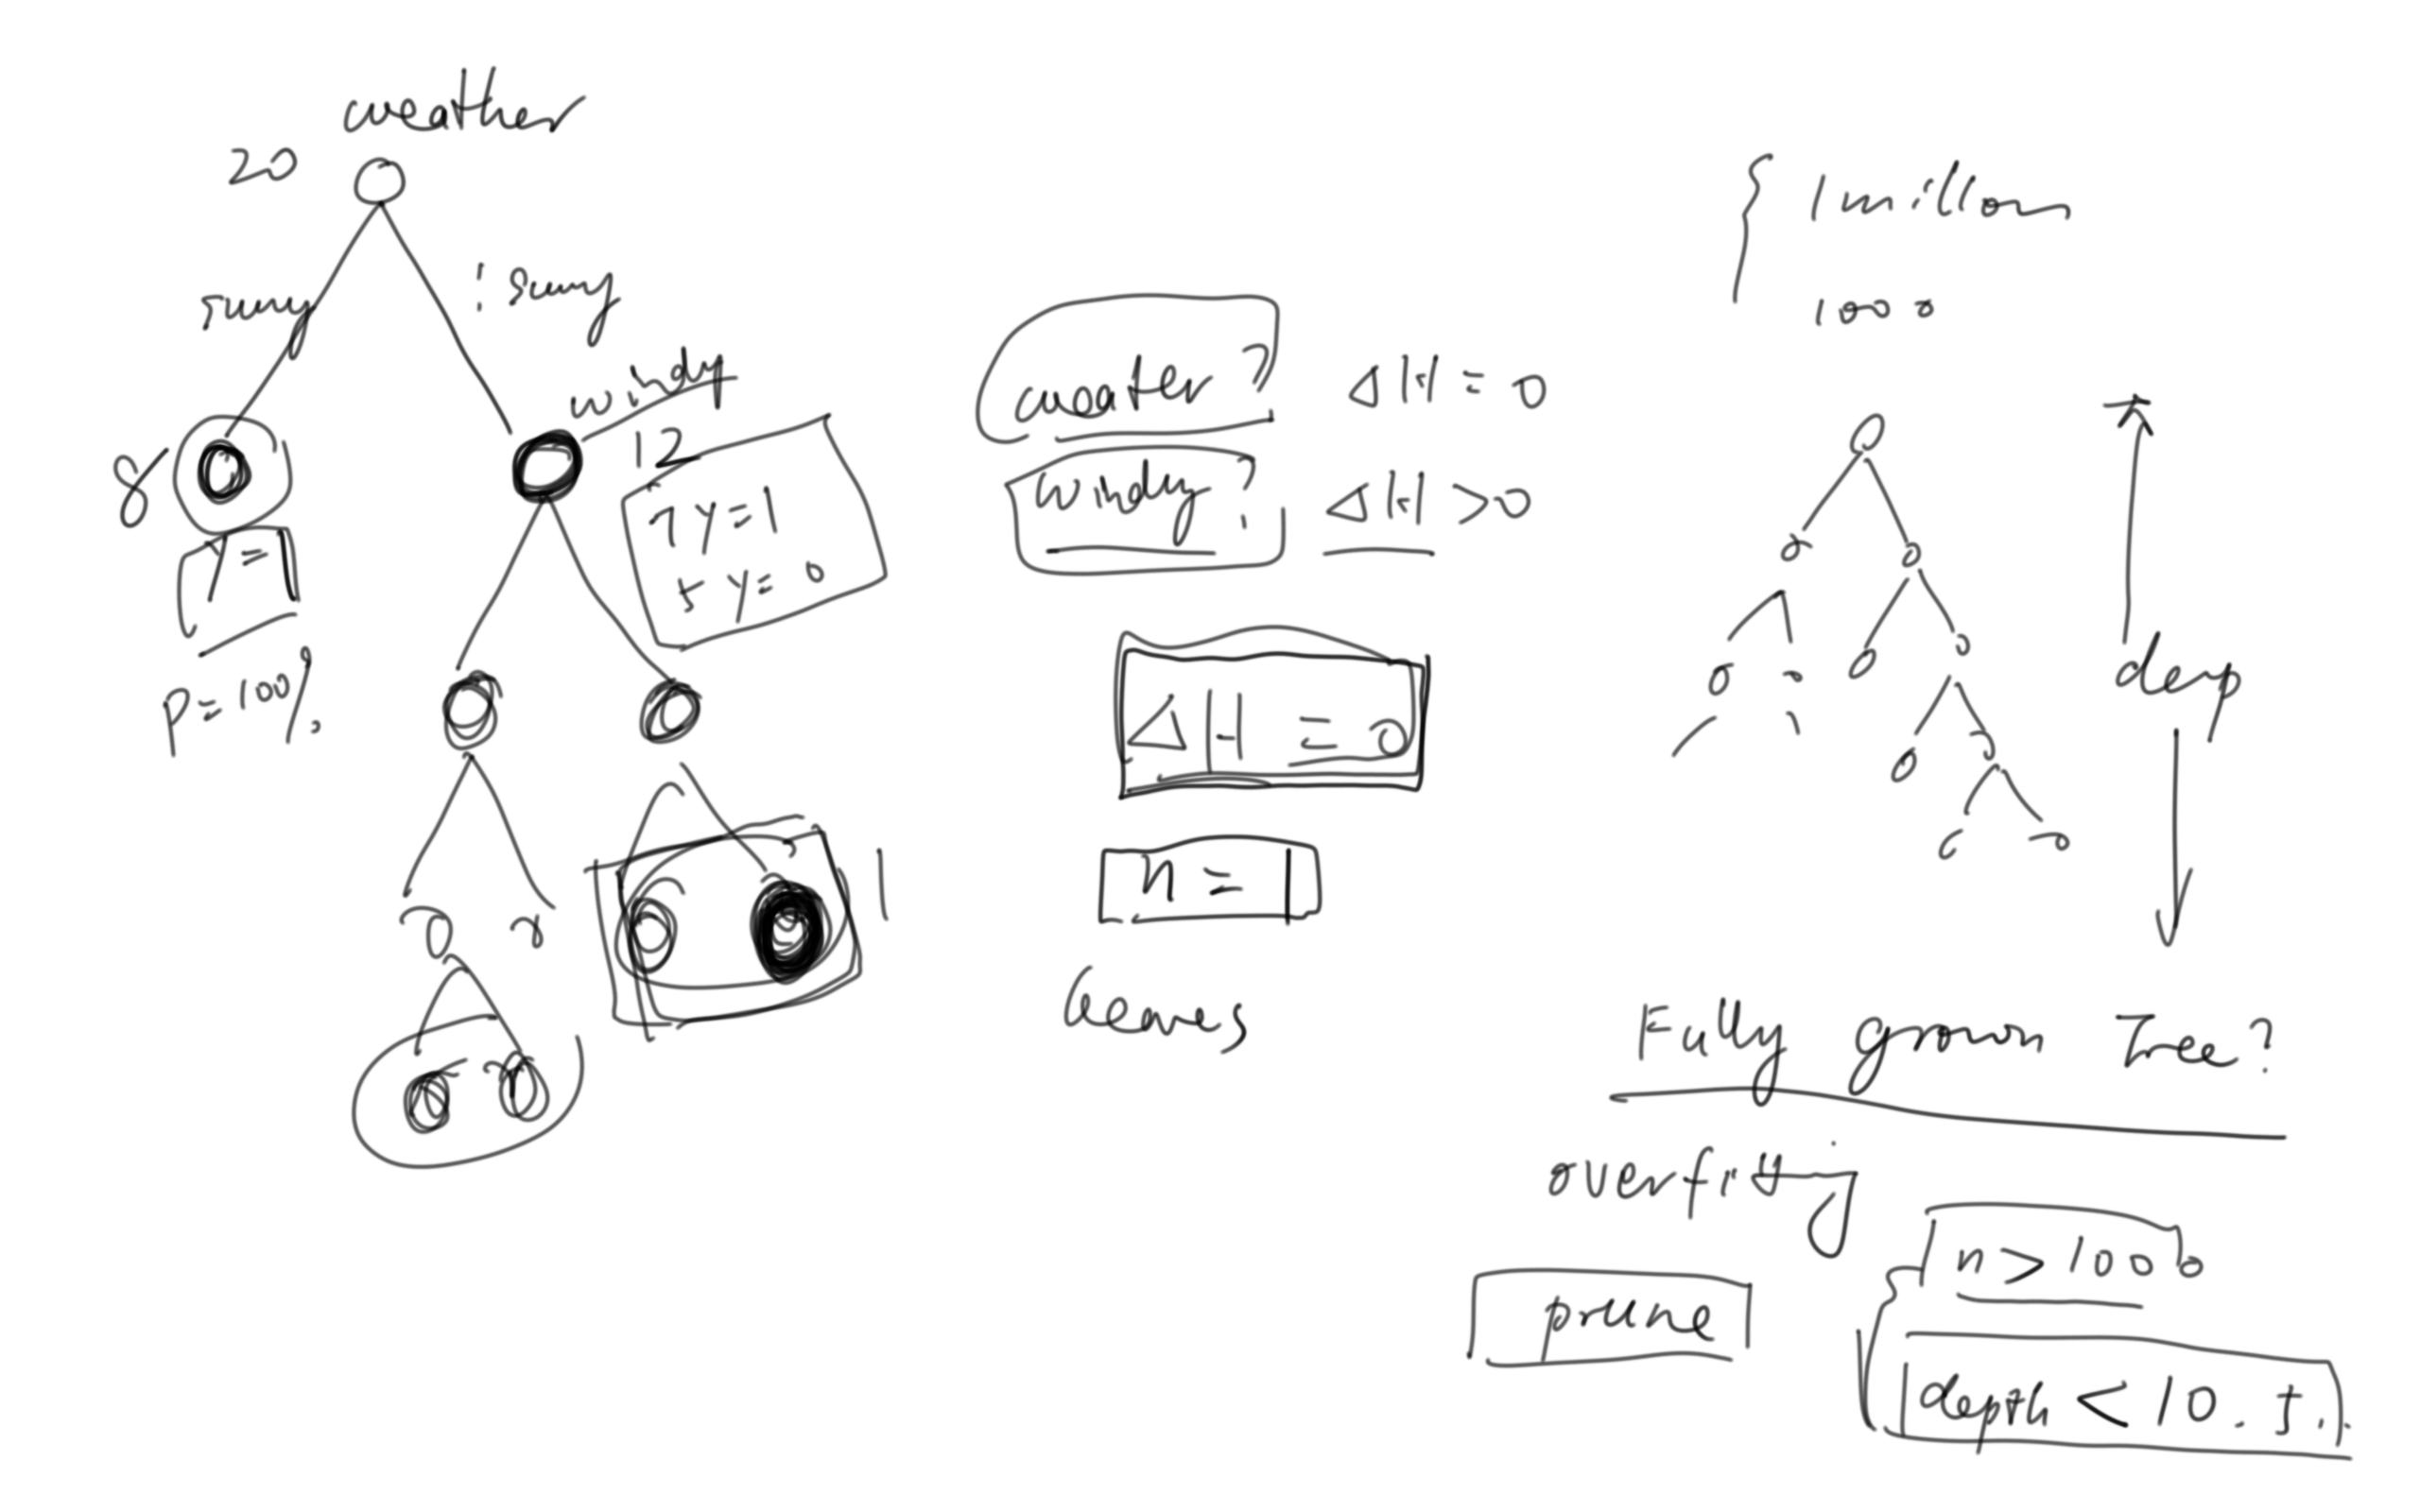 weather
20
sunny
! sunny
windy
8
12
Y=1
P=100%
7 Y=1
5 Y=0
1
weather?
ΔH=0
windy?
ΔH>0
ΔH=0
n=1
leaves
1 million
10000
deep
Fully grown Tree?
overfitting
prune
n>1000
depth<10.